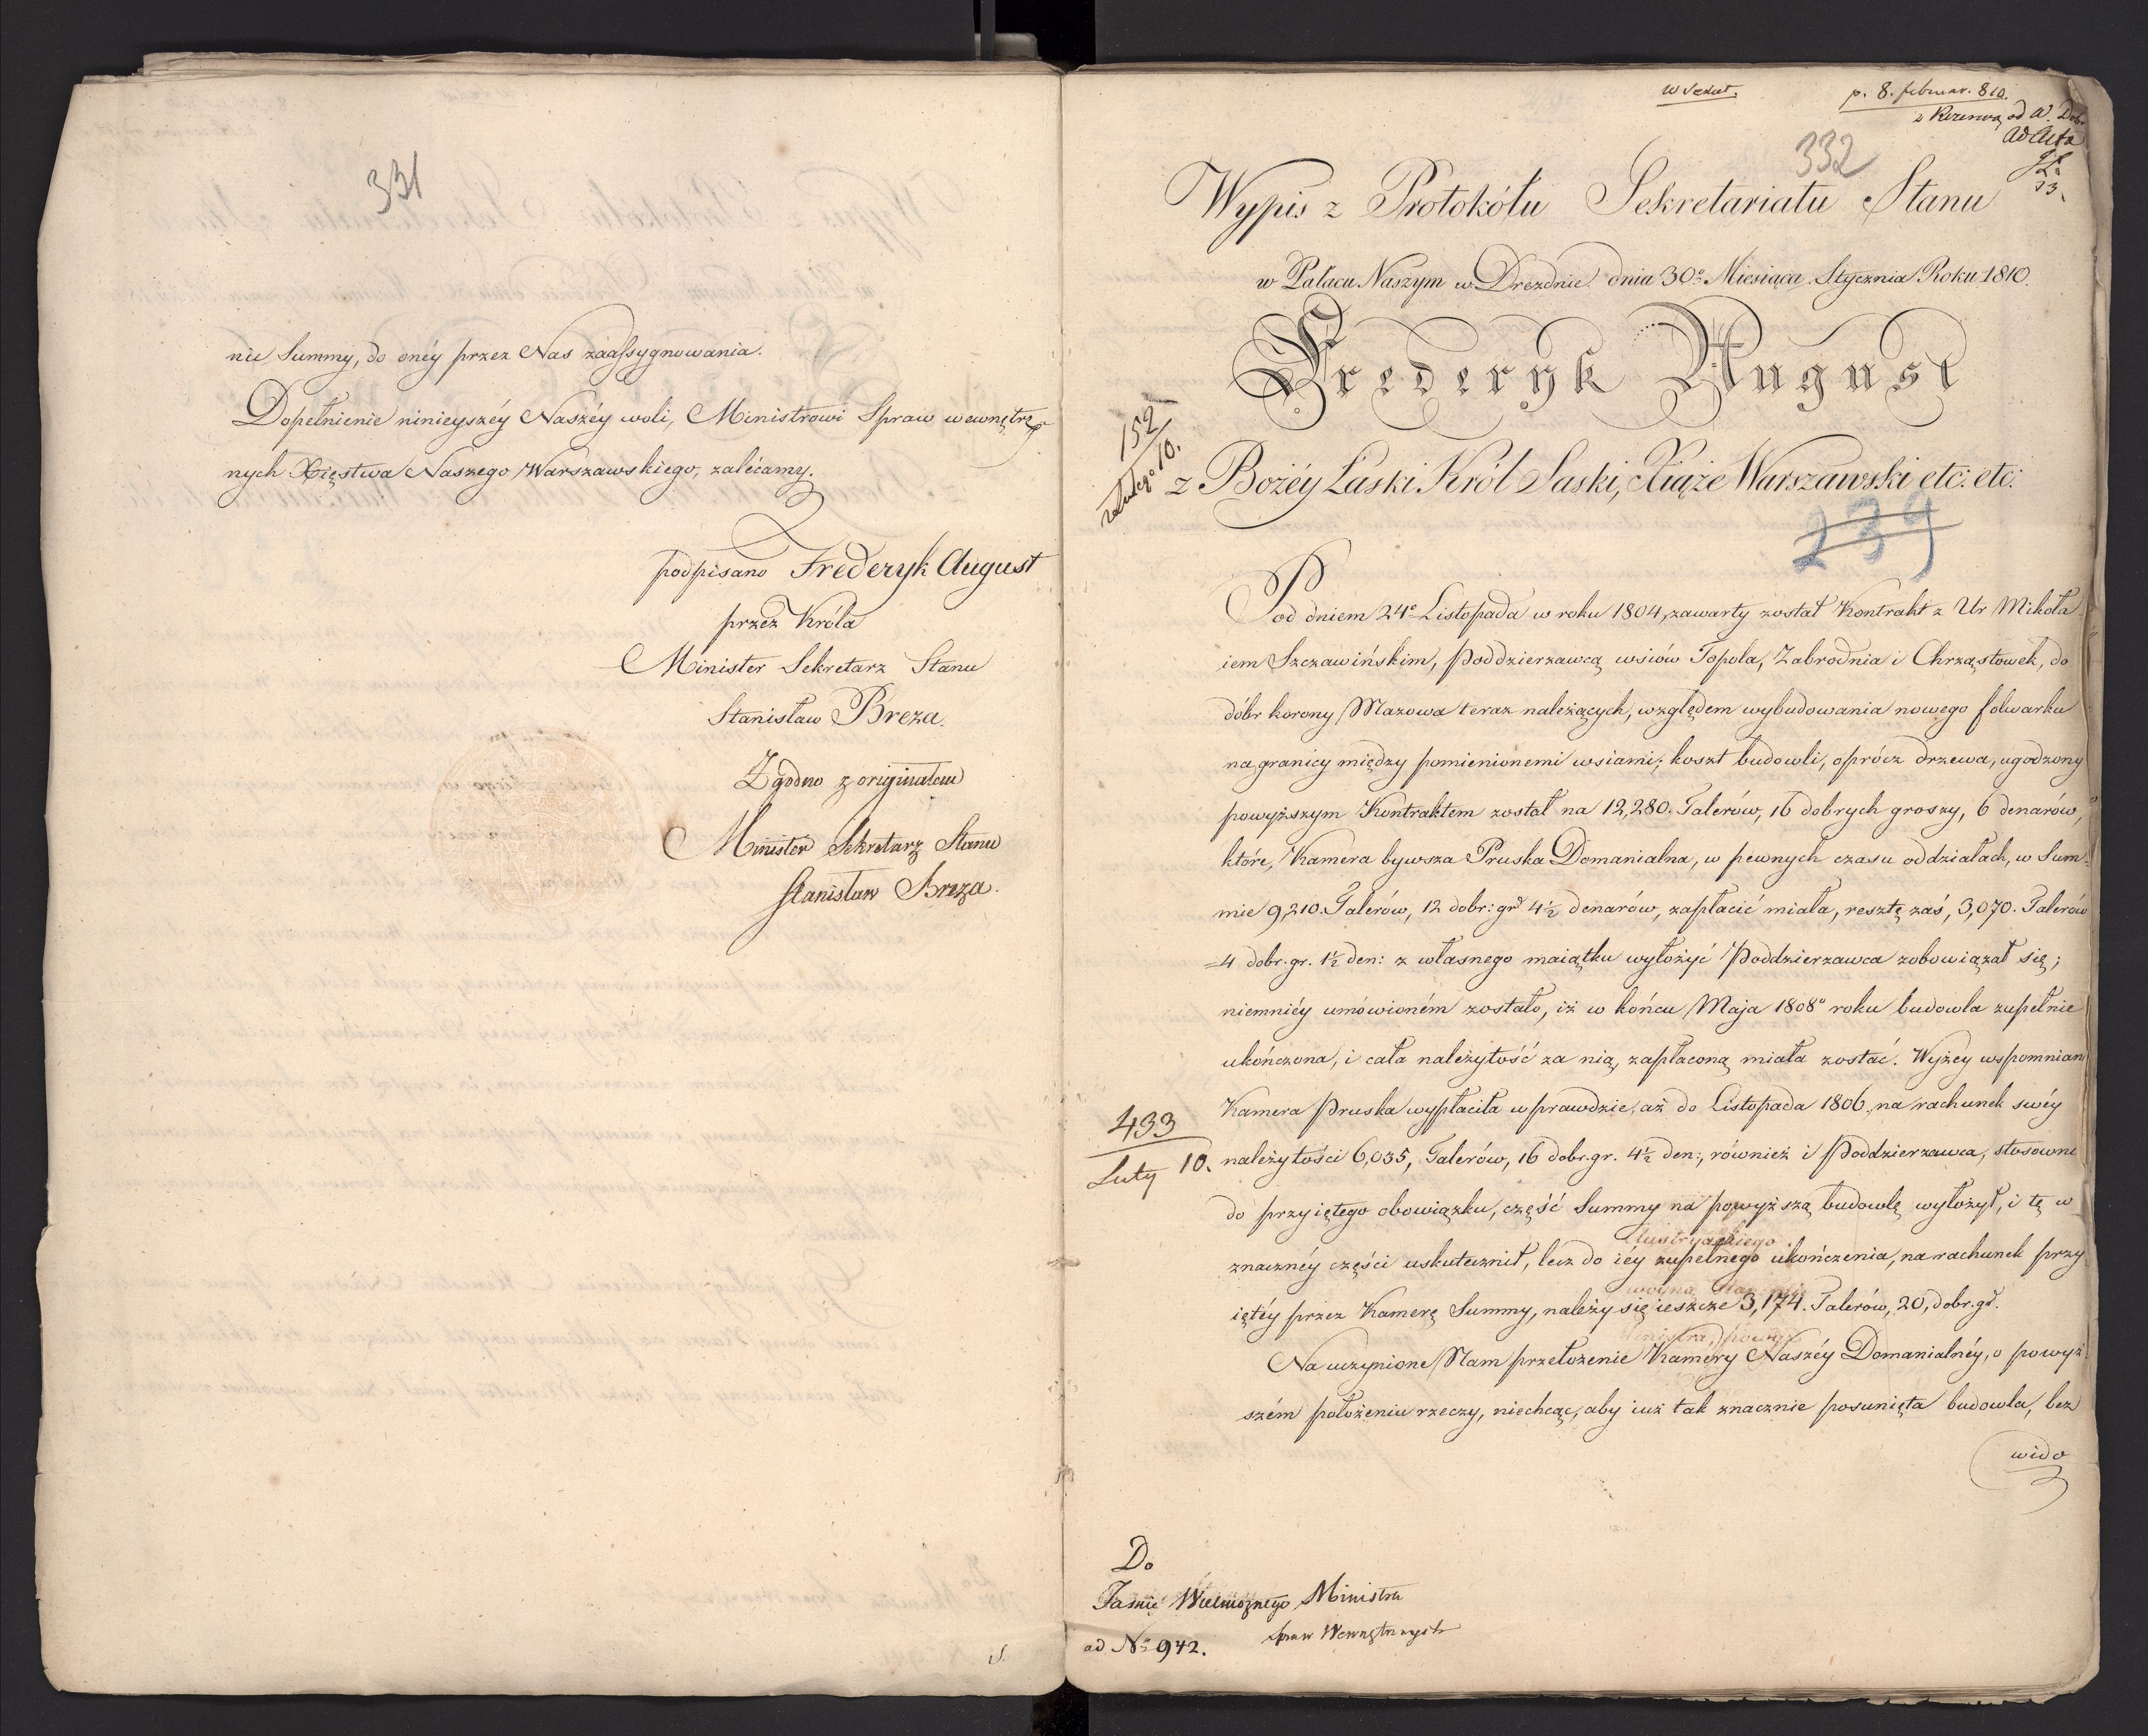 331
nie Summy, do onéy przez Nas zaassygnowania.
Dopełnienie ninieyszéy Naszéy woli, Ministrowi Spraw wewnętrz=
nych Xięstwa Naszego Warszawskiego, zalécamy.
podpisano Frederyk August
przez Króla
Minister Sekretarz Stanu
Stanisław Breza.
Zgodno z originałem
Minister Sekretarz Stanu
Stanisław Breza.
p. 8. februar. 810.
ad Acta
332
Wypis z Protokółu Sekretariatu Stanu
w Pałacu Naszym w Dreznie dnia 30º Miesiąca Stycznia Roku 1810.
Frederyk August
152
10.
z Bożéy Łaski Król Saski, Xiąże Warszawski etc: etc:
239
Pod dniem 24º Listopada w roku 1804, zawarty został Kontrakt z Ur Mikoła
iem Szczawińskim, Poddzierzawcą wsiów Topola, Zabrodnia i Chrząstowek, do
dóbr korony Mazowa teraz należących, względem wybudowania nowego folwarku
na granicy między pomienionemi wsiami; koszt budowli, oprócz drzewa, ugodzony
powyższym Kontraktem został na 12,280. Talerów, 16 dobrych groszy, 6 denarów,
które, Kamera bywsza Pruska Domanialna, w pewnych czasu oddziałach, w Sum=
mie 9,210. Talerów, 12 dobr: gr 4½ denarów, zapłacić miała, resztę zaś, 3,070. Talerów
4 dobr. gr. 1½ den: z własnego maiątku wyłożyć Poddzierzawca zobowiązał się;
niemniéy umówioném zostało, iż w końcu Maja 1808º roku budowla zupełnie
ukończona, i cała należytość za nią, zapłaconą miała zostać. Wyżey wspomnian
Kamera Pruska wypłaciła wprawdzie, aż do Listopada 1806. na rachunek swéy
433
Luty 10.
należytości 6,035, Talerów, 16 dobr. gr. 4½ den:, również i Poddzierzawca, stosowne
do przyiętego obowiązku, część Summy na powyższą budowlę wyłożył, i tę w
znacznéy części uskutecznił, lecz do iéy zupełnego ukończenia, na rachunek przy
iętéy przez Kamerę Summy, należy się ieszcze 3,174. Talerów, 20, dobr. gr.
Na uczynione Nam przełożenie Kamery Naszéy Domanialnéy, o powyż
szém położeniu rzeczy, niechcąc, aby iuż tak znacznie posunięta budowla, bez
wido
Do
Jaśnie Wielmożnego Ministra
Spraw Wewnętrznych
ad Nº 942.